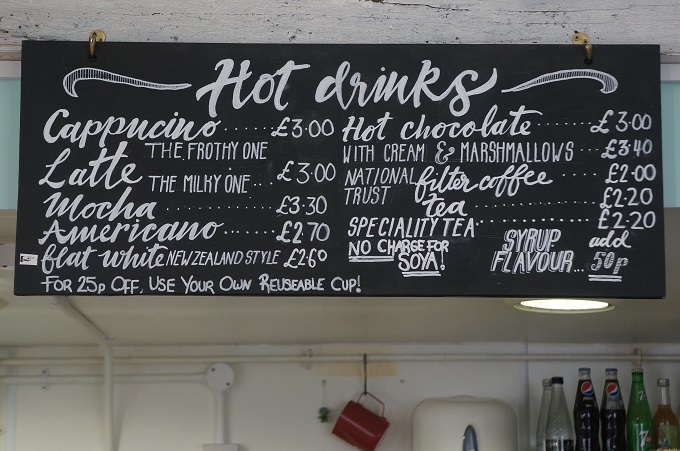 Hot drinks
Cappucino ..... £3.00
THE FROTHY ONE
Latte THE MILKY ONE ... £3.00
Mocha ............ £3.30
Americano ....... £2.70
flat white NEW ZEALAND STYLE £2.60
FOR 25P OFF, USE YOUR OWN REUSEABLE CUP!
Hot chocolate ........ £3.00
WITH CREAM & MARSHMALLOWS ... £3.40
NATIONAL TRUST filter coffee ..... £2.00
tea ............... £2.20
SPECIALITY TEA ............ £2.20
NO CHARGE FOR SOYA!
SYRUP FLAVOUR... add 50p
pepsi
pepsi
7